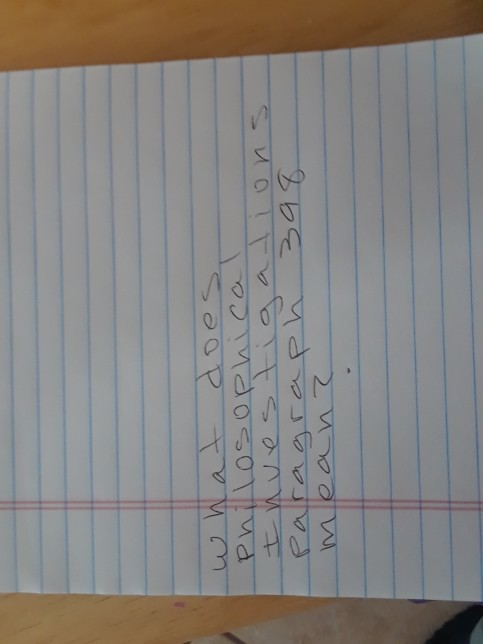 What does
Philosophical
Investigations
Paragraph 398
mean?